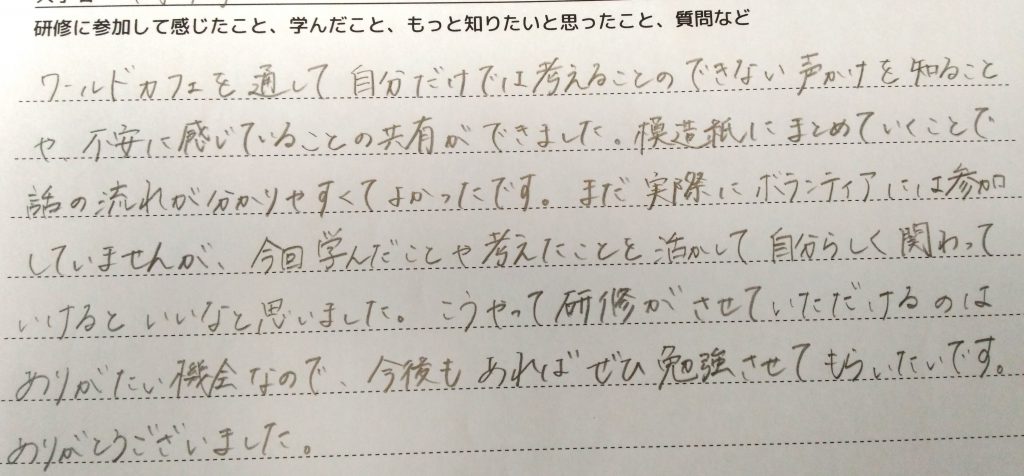 研修に参加して感じたこと、学んだこと、もっと知りたいと思ったこと、質問など
ワールドカフェを通して自分だけでは考えることのできない声かけを知ること
や、不安に感じていることの共有ができました。模造紙にまとめていくことで
話の流れが分かりやすくてよかったです。まだ実際にボランティアには参加
していませんが、今回学んだことや考えたことを活かして自分らしく関わって
いけるといいなと思いました。こうやって研修がさせていただけるのは
ありがたい機会なので、今後もあればぜひ勉強させてもらいたいです。
ありがとうございました。